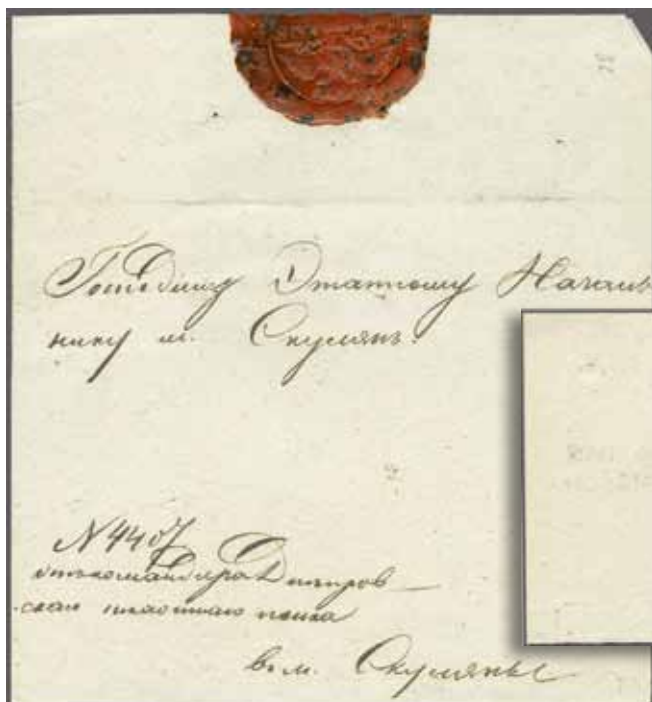 Господину Этапному Началь
нику м. Скулянъ.
N 4407
отъ командира Днепров
скаго пехотнаго полка
въ м. Скуляны